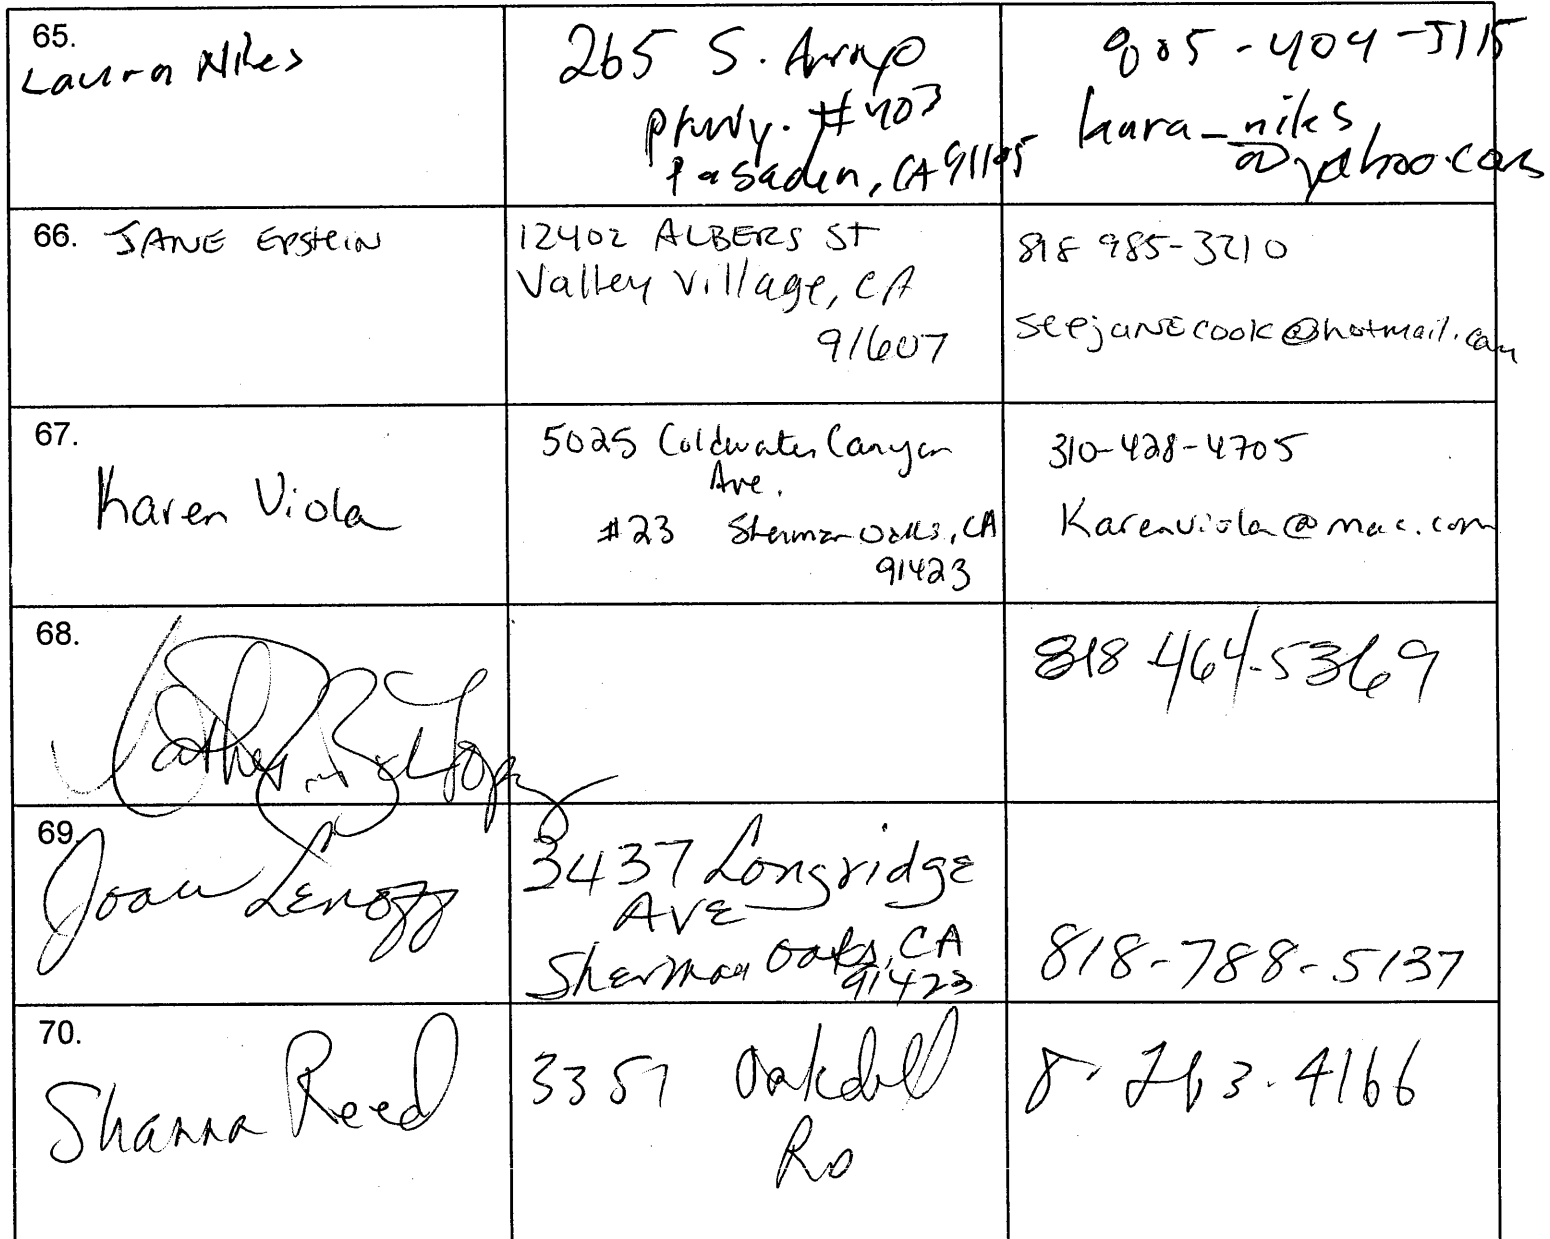 65.
Laura Niles
265 S. Arroyo
pkwy. #403
Pasaden, CA 91105
805-404-5115
laura_niles
@yahoo.com
66. JANE EPSTEIN
12402 ALBERS ST
Valley Village, CA
91607
818 985-3210
seejanecook@hotmail.com
67.
Karen Viola
5025 Coldwater Canyon
Ave.
#23 Sherman Oaks, CA
91423
310-428-4705
Karenviola@mac.com
68.
Kathy
818-464-5369
69.
Joan Lenoff
3437 Longridge
AVE
Sherman Oaks, CA
91423
818-788-5137
70.
Shanna Reed
3351 Oakdell
RD
8. 763.4166